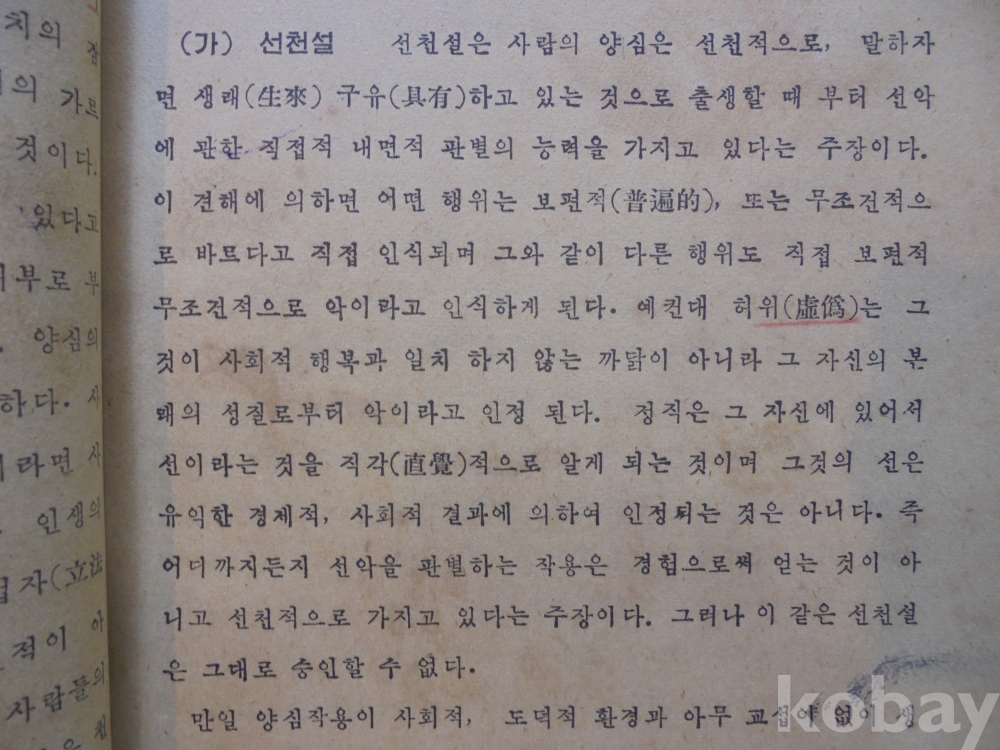 치의
의 가르
것이다.
있다고
부로 부
양심의
하다. 사
라면 사
인생의
자(立法
적이 아
사람들의
(가) 선천설 선천설은 사람의 양심은 선천적으로, 말하자
면 생래(生來) 구유(具有)하고 있는 것으로 출생할 때 부터 선악
에 관한 직접적 내면적 판별의 능력을 가지고 있다는 주장이다.
이 견해에 의하면 어면 행위는 보편적(普遍的), 또는 무조건적으
로 바르다고 직접 인식되며 그와 같이 다른 행위도 직접 보편적
무조건적으로 악이라고 인식하게 된다. 예컨대 허위(虛僞)는 그
것이 사회적 행복과 일치 하지 않는 까닭이 아니라 그 자신의 본
래의 성질로부터 악이라고 인정 된다. 정직은 그 자신에 있어서
선이라는 것을 직각(直覺)적으로 알게 되는 것이며 그것의 선은
유익한 경제적, 사회적 결과에 의하여 인정되는 것은 아니다. 즉
어디까지든지 선악을 판별하는 작용은 경험으로써 얻는 것이 아
니고 선천적으로 가지고 있다는 주장이다. 그러나 이 같은 선천설
은 그대로 승인할 수 없다.
만일 양심작용이 사회적, 도덕적 환경과 아무 교섭이 없이 생
kobay